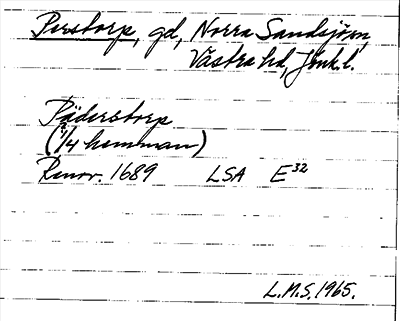 Perstorp, gd, Norra Sandsjö sn,
Västra hd, Jönk.l.
Päderstorp
(1/4 hemman)
Renov. 1689 LSA E³²
L.M.S. 1965.